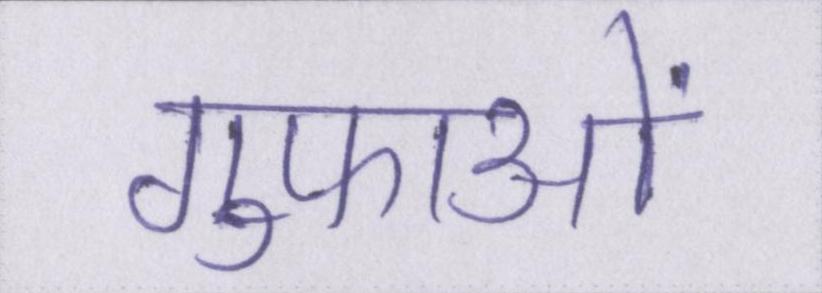 गुफाओं